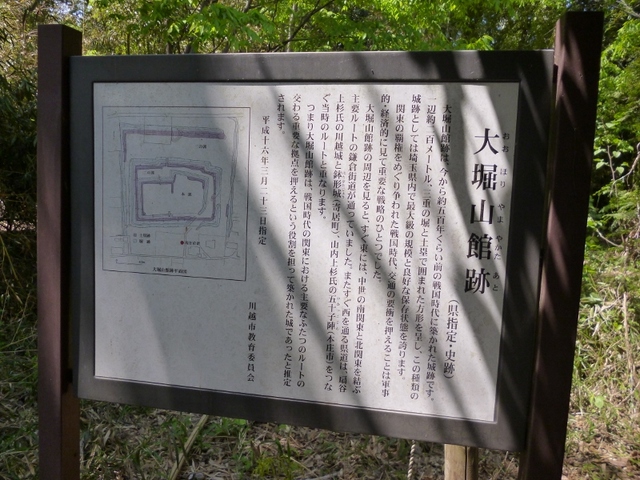 大堀山館跡
おお ほり やま やかた あと
（県指定・史跡）
大堀山館跡は、今から約五百年くらい前の戦国時代に築かれた城跡です。
一辺約二百メートル、三重の堀と土塁で囲まれた方形を呈し、この種類の
城跡としては埼玉県内で最大級の規模と良好な保存状態を誇ります。
関東の覇権をめぐり争われた戦国時代、交通の要衝を押えることは軍事
的・経済的に見て重要な戦略のひとつでした。
大堀山館跡の周辺を見ると、すぐ東には、中世の南関東と北関東を結ぶ
主要ルートの鎌倉街道が通っていました。またすぐ西を通る県道は、扇谷
上杉氏の川越城と鉢形城（寄居町）、山内上杉氏の五十子陣（本庄市）をつな
ぐ当時のルートと重なります。
つまり大堀山館跡は、戦国時代の関東における主要なふたつのルートの
交わる重要な拠点を押えるという役割を担って築かれた城であったと推定
されます。
平成十六年三月二十二日指定
川越市教育委員会